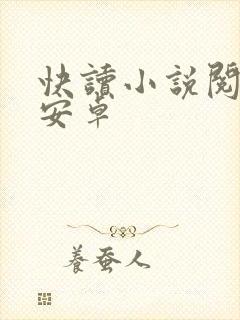 快讀小說閱
安卓
養蚕人